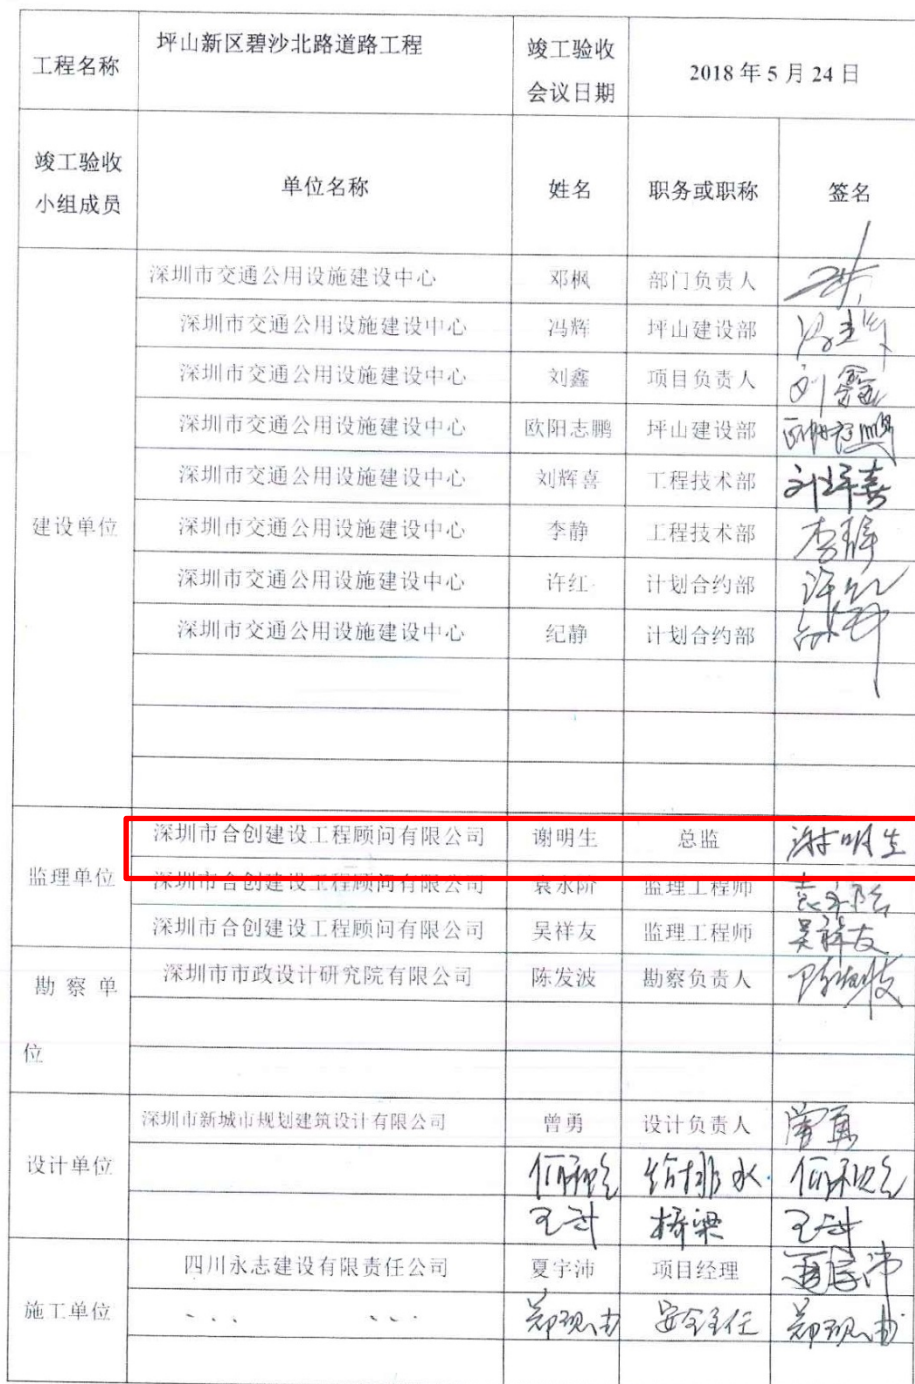 工程名称 坪山新区碧沙北路道路工程 竣工验收会议日期 2018年5月24日
竣工验收小组成员 单位名称 姓名 职务或职称 签名
建设单位 深圳市交通公用设施建设中心 邓枫 部门负责人
深圳市交通公用设施建设中心 冯辉 坪山建设部
深圳市交通公用设施建设中心 刘鑫 项目负责人 刘鑫
深圳市交通公用设施建设中心 欧阳志鹏 坪山建设部 欧阳志鹏
深圳市交通公用设施建设中心 刘辉喜 工程技术部 刘辉喜
深圳市交通公用设施建设中心 李静 工程技术部 李静
深圳市交通公用设施建设中心 许红 计划合约部 许红
深圳市交通公用设施建设中心 纪静 计划合约部
监理单位 深圳市合创建设工程顾问有限公司 谢明生 总监 谢明生
深圳市合创建设工程顾问有限公司 袁水阶 监理工程师
深圳市合创建设工程顾问有限公司 吴祥友 监理工程师 吴祥友
勘察单位 深圳市市政设计研究院有限公司 陈发波 勘察负责人 陈发波
设计单位 深圳市新城市规划建筑设计有限公司 曾勇 设计负责人 曾勇
给排水
桥梁
施工单位 四川永志建设有限责任公司 夏宇沛 项目经理 夏宇沛
、、、 、、、 安全主任